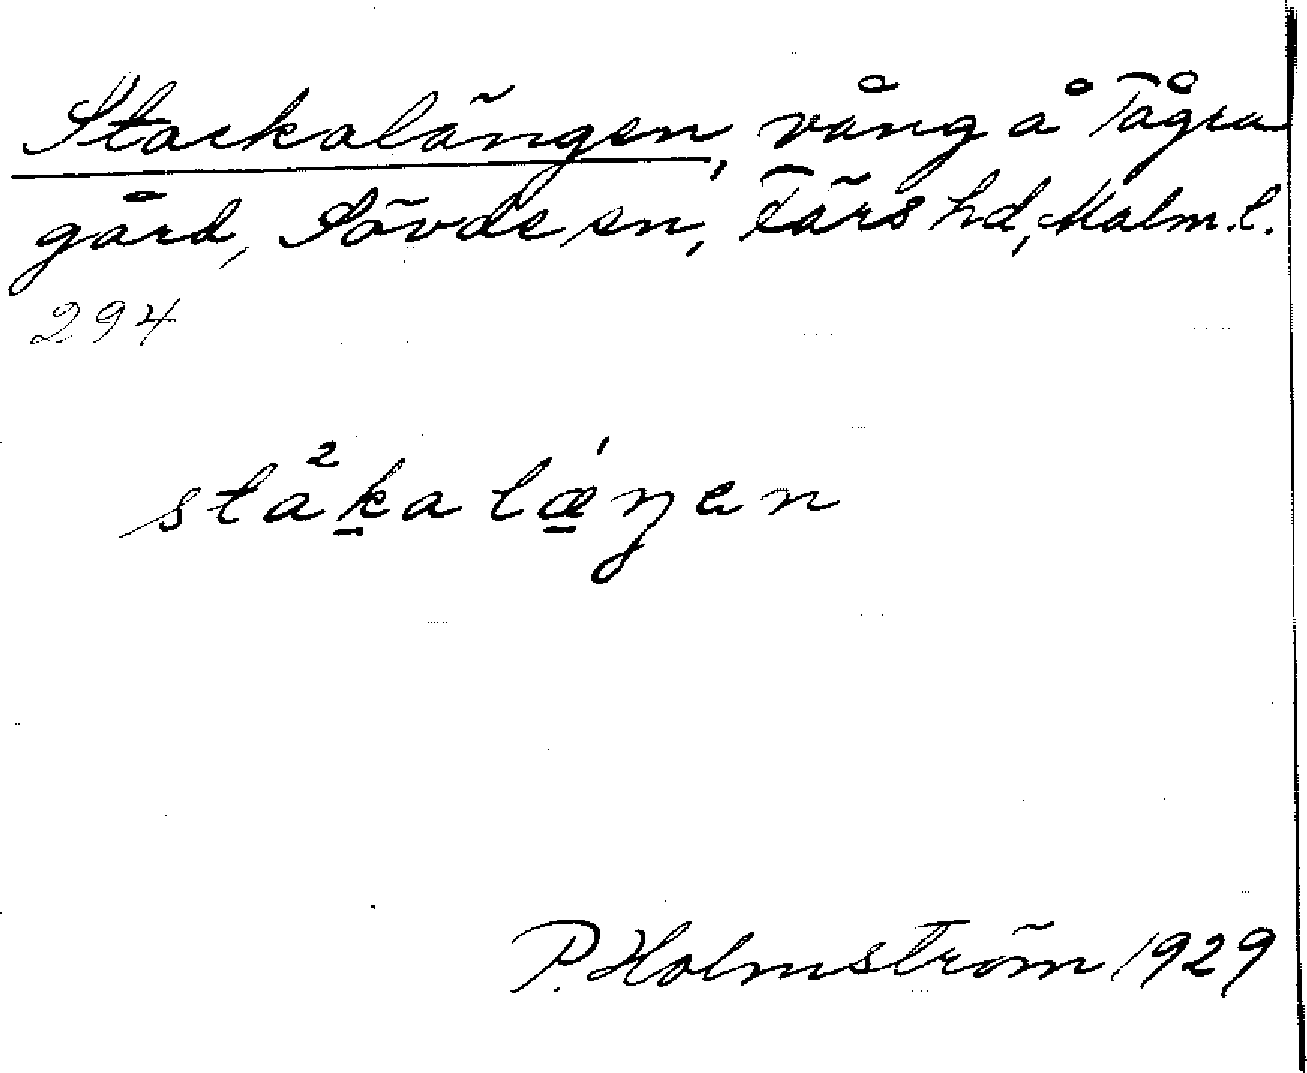 Stackalängen, vång å Tågra
gård, Sövde sn, Färs hd, Malm. l.
294
ståkalæŋen
P. Holmström 1929